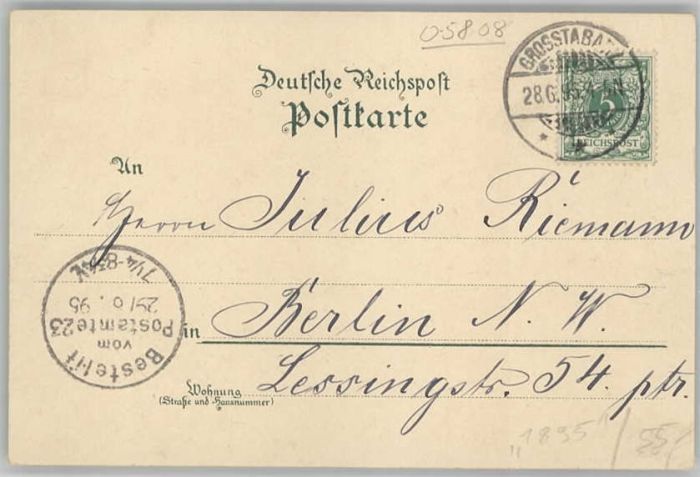 0-5808
GROSSTABA
28.6.95.4-5N
5
REICHSPOST
Deutsche Reichspost
Postkarte
An
Herrn Julius Riemann
in Berlin N. W.
Wohnung
(Straße und Hausnummer)
Lessingstr. 54. ptr.
Bestellt
vom
Postamte 23
29/6.95
7¼-8¾V
"1895"/55/